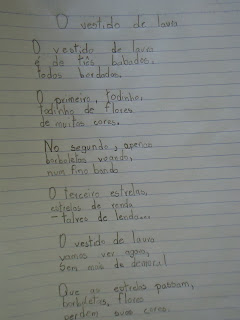 O vestido de laura
O vestido de laura
é de três babados,
todos bordados.
O primeiro, todinho,
todinho de flores
de muitas cores.
No segundo, apenas
borboletas voando,
num fino bando.
O terceiro estrelas,
estrelas de renda
- talvez de lenda...
O vestido de laura
vamos ver agora,
sem mais demora!
Que as estrelas passam,
borboletas, flores
perdem suas cores.